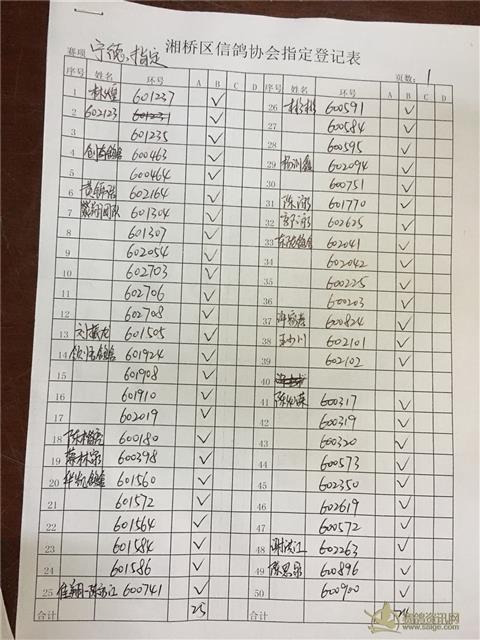 湘桥区信鸽协会指定登记表
赛项 宁德、指定 页数: 1
序号 姓名 环号 A B C D 序号 姓名 环号 A B C D
1 林煌 601237 ✓
2 602123 601231 ✓
3 601235 ✓
4 创富鸽舍 600463 ✓
5 600464 ✓
6 602164 ✓
7 团队 601304 ✓
8 601307 ✓
9 602054 ✓
10 602703 ✓
11 602706 ✓
12 602708 ✓
13 刘振龙 601505 ✓
14 鸽舍 601924 ✓
15 601908 ✓
16 601910 ✓
17 602019 ✓
18 600180 ✓
19 蔡林泉 600398 ✓
20 鸽舍 601560 ✓
21 601572 ✓
22 601564 ✓
23 601584 ✓
24 601586 ✓
25 佳翔-陈 江 600741 ✓
合计 25
26 林彬彬 600591 ✓
27 600584 ✓
28 600595 ✓
29 602094 ✓
30 600751 ✓
31 陈泳 601770 ✓
32 602625 ✓
33 602041 ✓
34 602042 ✓
35 600225 ✓
36 600203 ✓
37 600824 ✓
38 王小川 602101 ✓
39 602102 ✓
40
41 陈 600317 ✓
42 600319 ✓
43 600320 ✓
44 600573 ✓
45 602350 ✓
46 602619 ✓
47 600572 ✓
48 谢洪江 602263 ✓
49 陈思泉 600896 ✓
50 600900 ✓
合计 24
赛鸽资讯网
www.saige.com